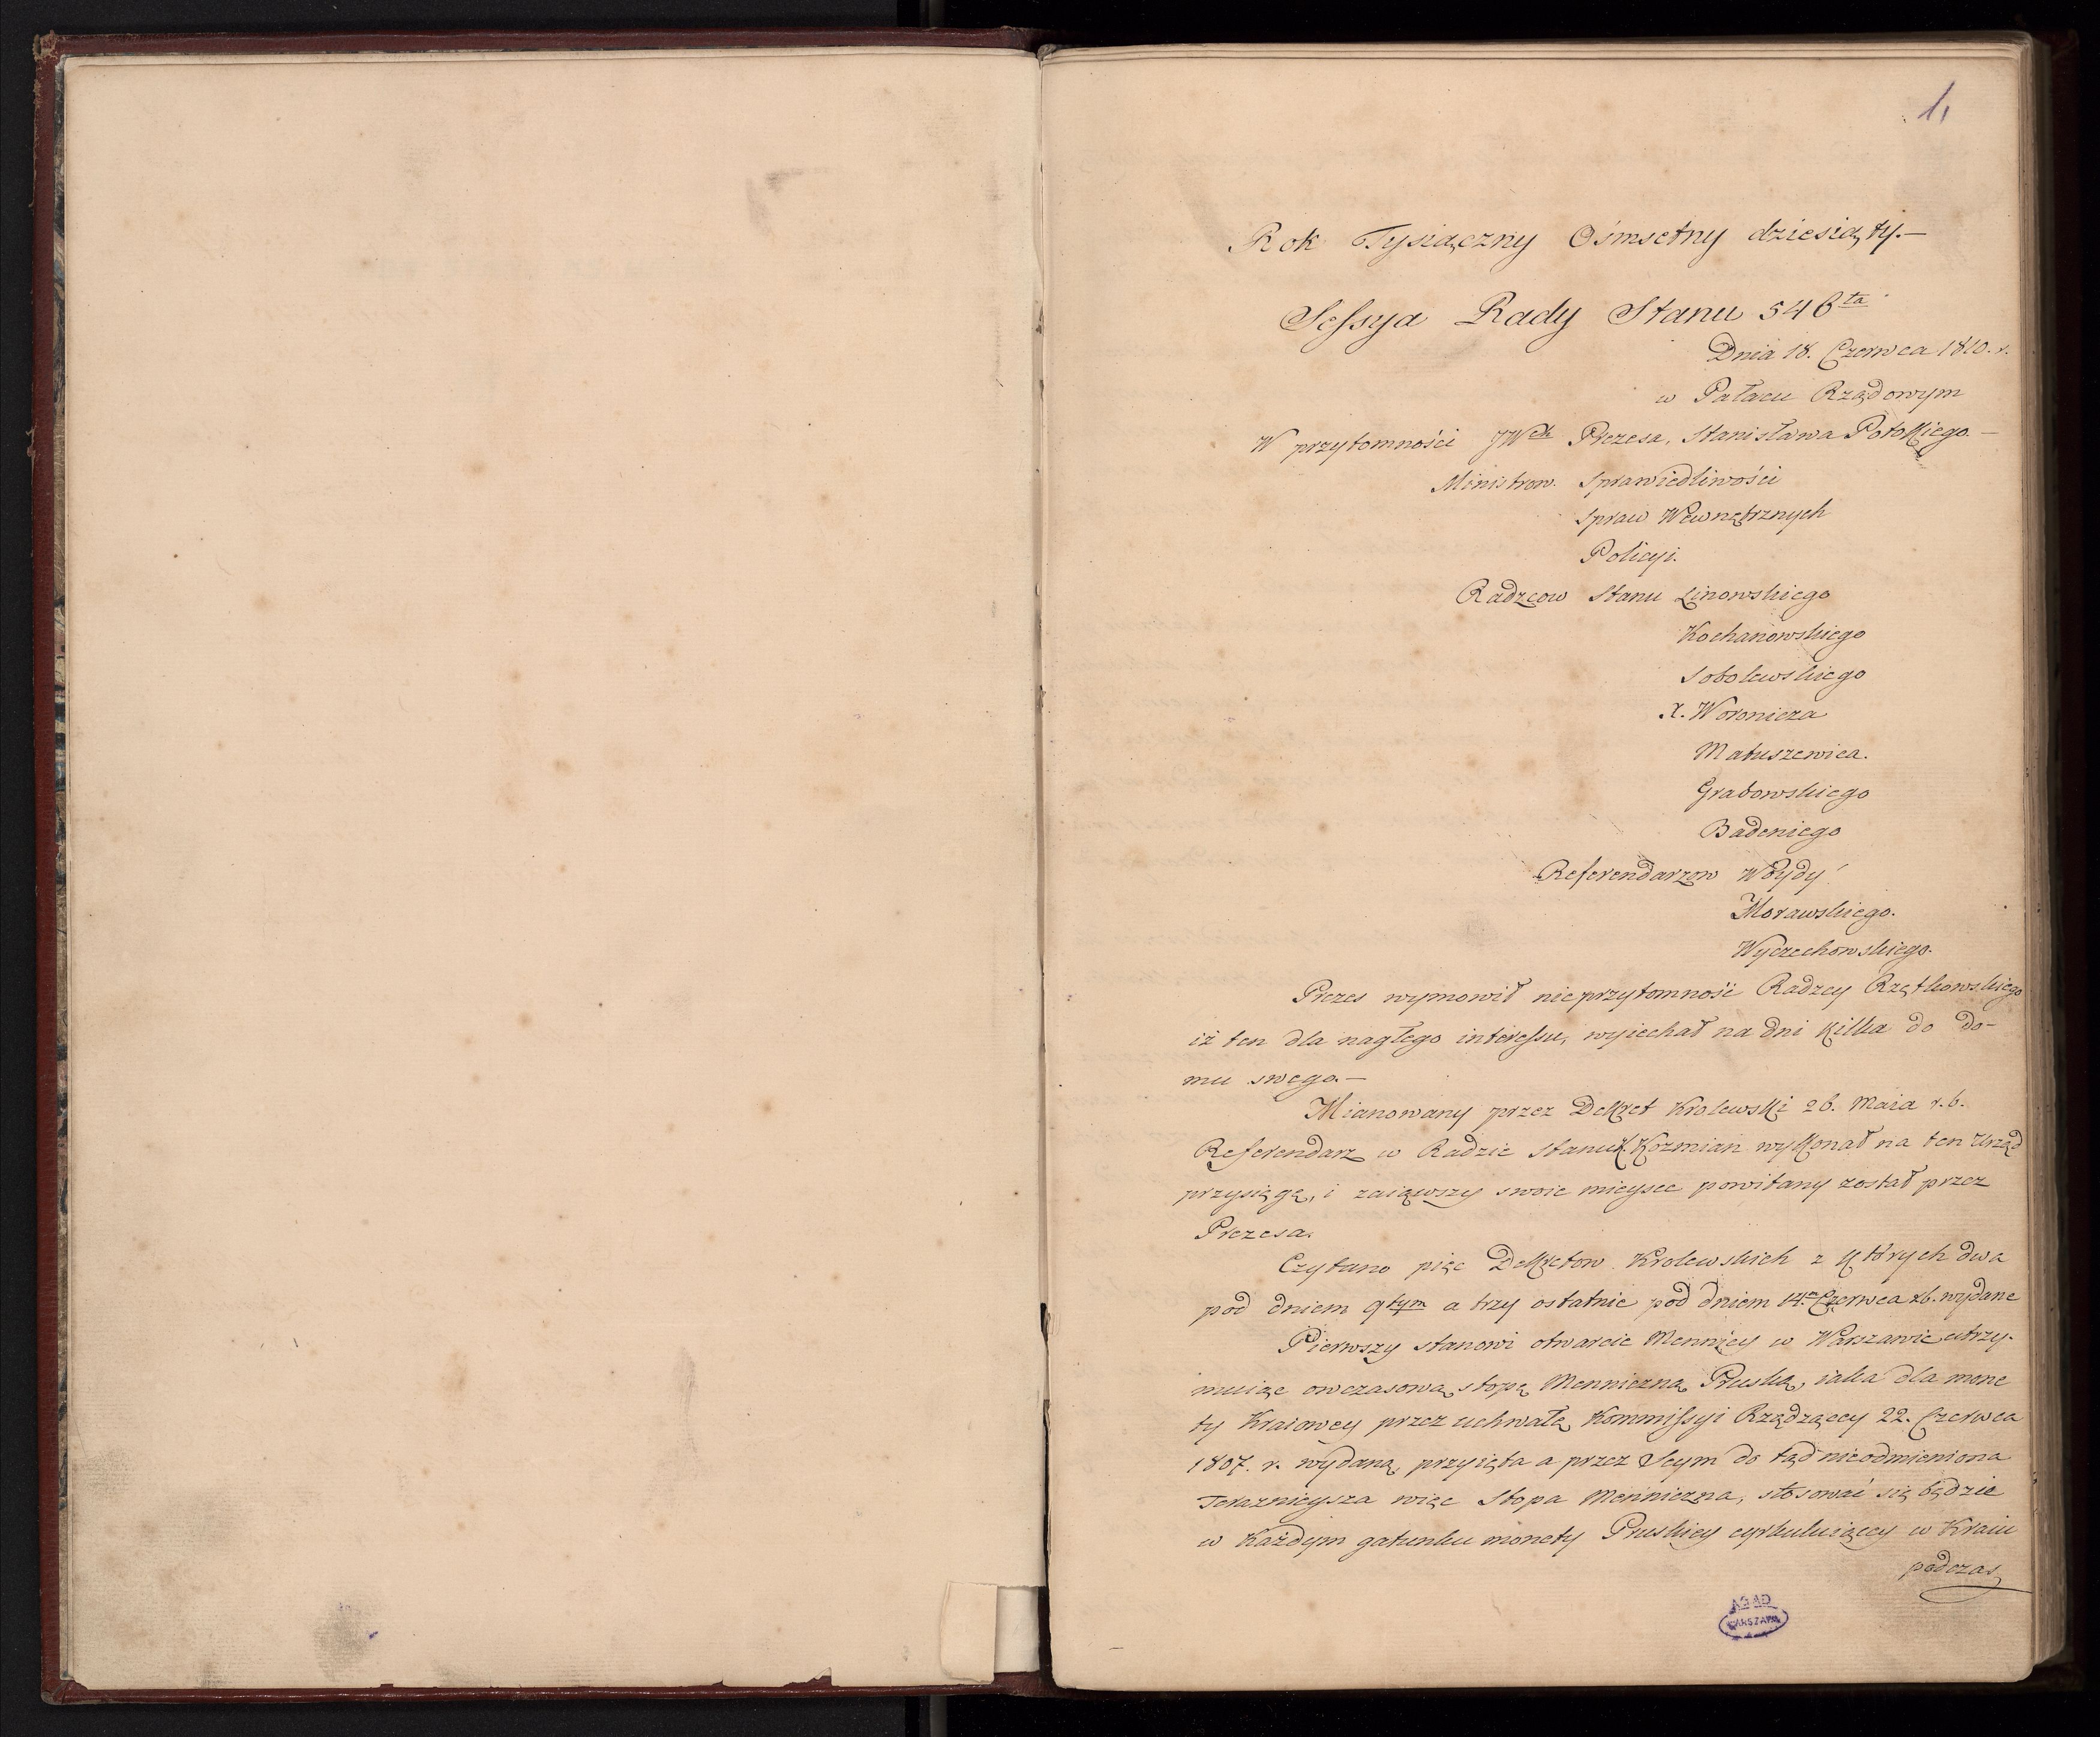 1,
Rok Tysiączny Ośmsetny dziesiąty.—
Sessya Rady Stanu 546ta
Dnia 18. Czerwca 1810. r.
w Pałacu Rządowym
W przytomności JWch Prezesa, Stanisława Potockiego.—
Ministrow. Sprawiedliwości
Spraw Wewnętrznych
Policyi.
Radzcow Stanu Linowskiego
Kochanowskiego
Sobolewskiego
X. Woronicza
Matuszewica.
Grabowskiego
Badeniego
Referendarzow Woydy
Morawskiego.
Wyczechowskiego.
Prezes wymowił nieprzytomność Radzcy Rzętkowskiego
iż ten dla nagłego interessu, wyiechał na dni kilka do do-
mu swego.—
Mianowany przez Dekret Krolewski 26. Maia r. b.
Referendarz w Radzie Stanu K. Kozmian wykonał na ten Urząd
przysięgę, i zaiąwszy swoie mieysce powitany został przez
Prezesa.
Czytano pięć Dekretow Krolewskich z ktorych dwa
pod dniem 9tym a trzy ostatnie pod dniem 14m Czerwca r.b. wydane
Pierwszy stanowi otwarcie Mennicy w Warszawie utrzy-
muiąc owczasową stopę Menniczną Pruską, iaka dla mone
ty Kraiowey przez uchwałę Kommissyi Rządzącey 22. Czerwca
1807. r. wydaną, przyięta a przez Seym do tąd nieodmieniona
Teraznieysza więc Stopa Mennicza, stosować się będzie
w Każdym gatunku monety Pruskiey cyrkuluiącey w Kraiu
podczas
AGAD
WARSZAWA